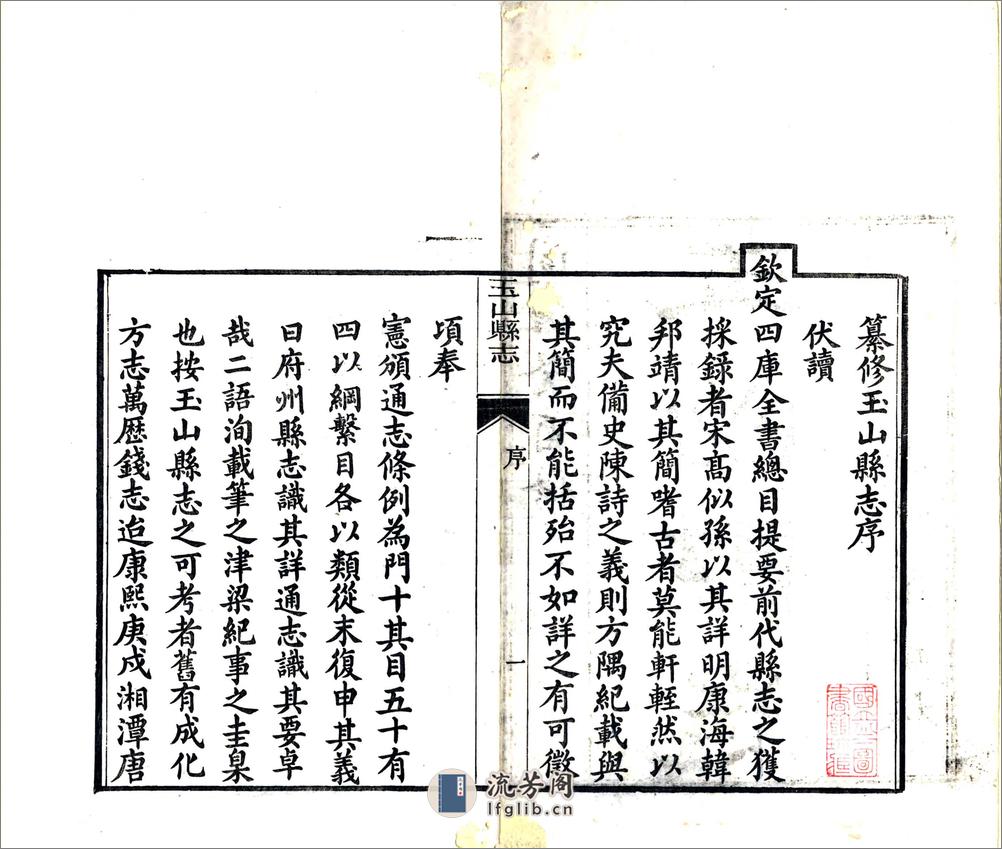 纂修玉山縣志序
伏讀
欽定四庫全書總目提要前代縣志之獲
採録者宋高似孫以其詳明康海韓
邦靖以其簡嗜古者莫能軒輊然以
究夫備史陳詩之義則方隅紀載與
其簡而不能括殆不如詳之有可徵
玉山縣志
序
一
頃奉
憲頒通志條例為門十其目五十有
四以綱繫目各以類從末復申其義
曰府州縣志識其詳通志識其要卓
哉二語洵載筆之津梁紀事之圭臬
也按玉山縣志之可考者舊有成化
方志萬歷錢志迨康熙庚戌湘潭唐
流芳阁
lfglib.cn